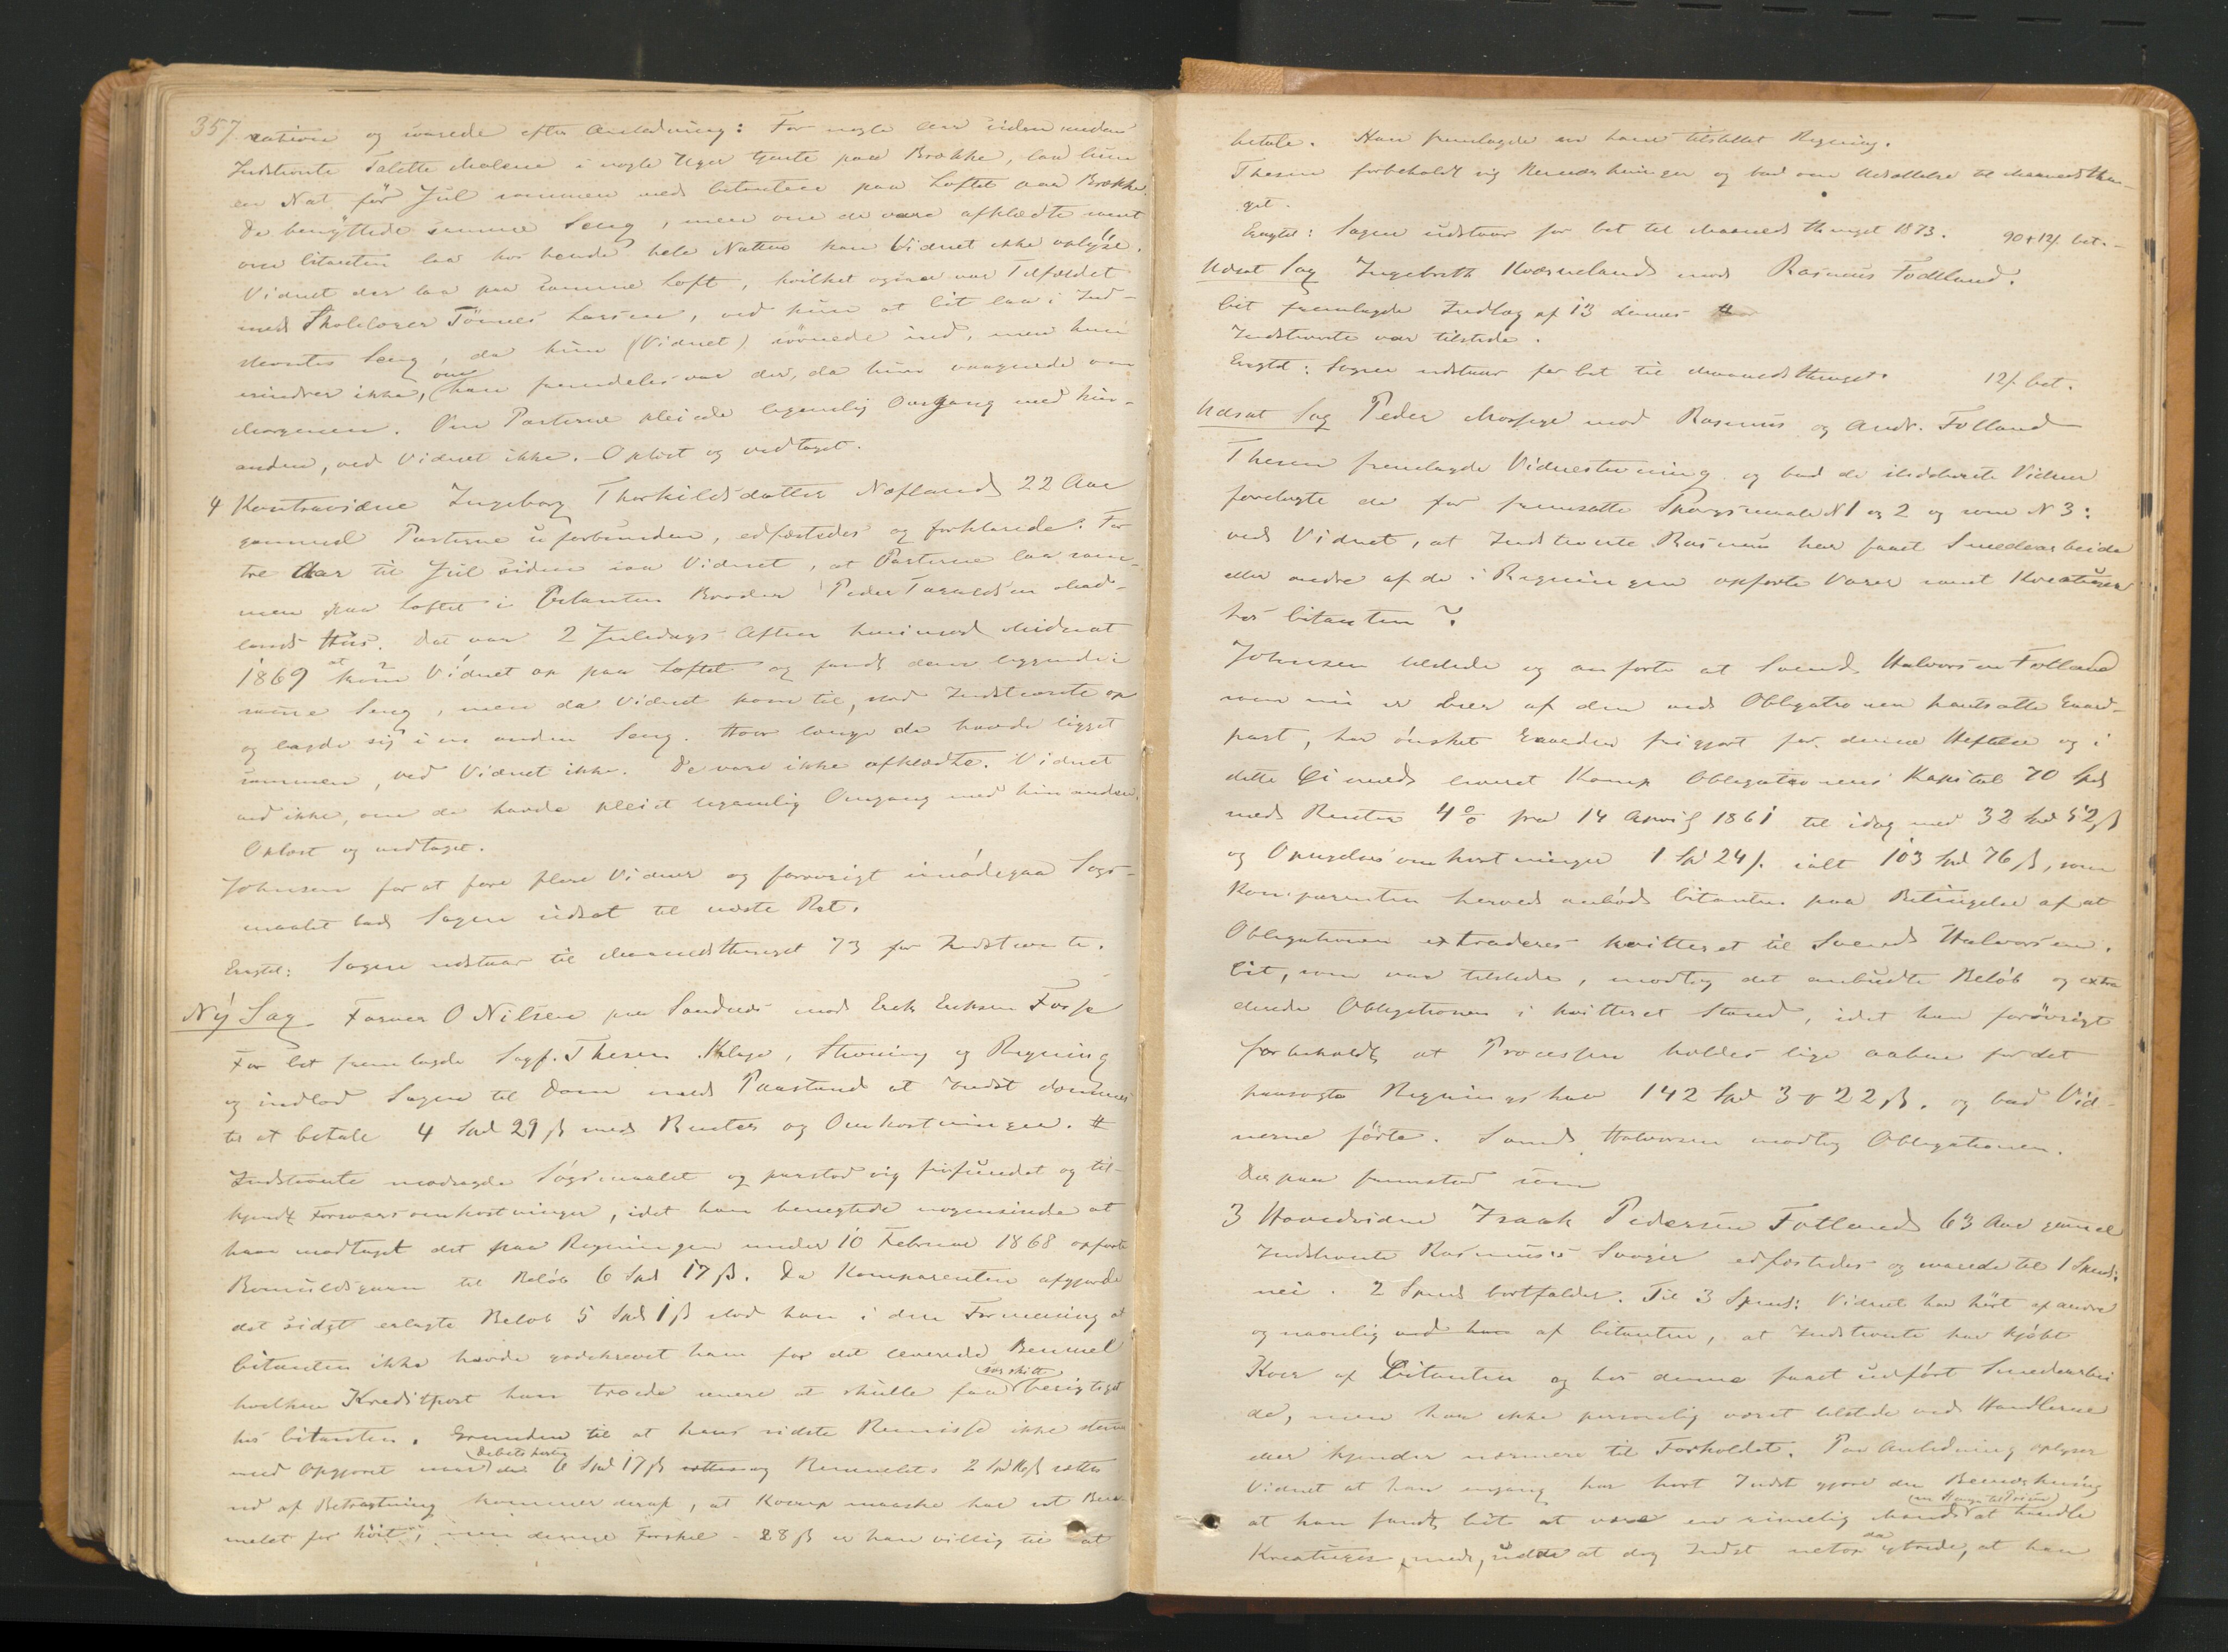 357.
ration og svarede efter Anledning: For nogle Aar siden medens
Indstevnte Talette Malene i nogle Uger tjente paa Brække, laa hun
en Nat før Jul sammen med Citanten paa Loftet paa Brække.
De benyttede samme Seng, men om de vare afklædte samt
om Citanten laa hos hende hele Natten kan Vidnet ikke oplyse.
Vidnet der laa paa samme Loft, hvilket ogsaa var Tilfældet
med Skolelærer Tønnes Larsen, ved kun at Cit laa i Ind-
stevntes Seng, da hun (Vidnet) sovnede ind, men hun
erindrer ikke, om han fremdeles var der, da hun vaagnede om
Morgenen. Om Parterne pleiede legemlig Omgang med hin-
anden, ved Vidnet ikke. Oplæst og vedtaget.
4 Kontravidne Ingeborg Thorkildsdatter Nøfland 22 Aar
gammel Parterne uforbunden, edfæstedes og forklarede: For
tre Aar til Jul siden saa Vidnet, at Parterne laa sam-
men paa Loftet i Citantens Broder Peder Taraldsen Mad-
lands Hus. Det var 2 Juledags Aften henimod Midnat
1869 at Vidnet kom op paa Loftet og fandt dem liggende i
samme Seng, men da Vidnet kom til, stod Indstevnte op
og lagde sig i en anden Seng. Hvor længe de havde ligget
sammen, ved Vidnet ikke. De vare ikke afklædte. Vidnet
ved ikke, om de havde pleiet legemlig Omgang med hinanden.
Oplæst og vedtaget.
Johnsen for at føre flere Vidner og forøvrigt imødegaa Søgs-
maalet bad Sagen udsat til næste Ret.
Eragtet: Sagen udstaar til Maanedsthinget 73 for Indstevnte.
Ny Sag Farver O Nilsen paa Sandnes mod Erik Eriksen Fosse
For Cit fremlagde Sagf. Thesen Klage, Stevning og Regning
og indlod Sagen til Dom med Paastand at Indst dømmes
til at betale 4 Spd 29 ß med Renter og Omkostninger. #
Indstevnte modsagde Søgsmaalet og paastod sig frifundet og til-
kjendt Forsvarsomkostninger, idet han benegtede nogensinde at
have modtaget det paa Regningen under 10 Februar 1868 opførte
Bomuldsgarn til Beløb 6 Spd 17 ß. Da Komparenten afgjorde
det sidst erlagte Beløb 5 Spd 1 ß stod han i den Formening at
Citanten ikke havde godskrevet ham for det leverede Bemmel
hvilken Kreditpost han troede senere at skulle faa særskilt berigtiget
hos Citanten. Grunden til at hans sidste Remisse ikke stemte
med Opgjøret naar Debetposten de 6 Spd 17 ß sættes og Bemmelets 2 Spd ß sættes
ud af Betragtning kommer deraf, at Komp maaske har sat Bem-
melet for høit; men denne Forskel - 28 ß er han villig til at
betale. Han fremlagde en ham tilstillet Regning.
Thesen forbeholdt sig Bemærkninger og bad om Udsættelse til Maanedsthin-
get.
Eragtet: Sagen udstaar for Cit til Maanedsthinget 1873. 90 + 12 ß bet.
Udsat Sag Ingebreth Kværneland mod Rasmus Fodtland.
Cit fremlagde Indlæg af 13 dennes #
Indstevnte var tilstede.
Eragtet: Sagen udstaar for Cit til Maanedsthinget. 12 ß bet.
Udsat Sag Peder Mossige mod Rasmus og Andr. Fotland
Thesen fremlagde Vidnestevning og bad de Vidner
forelagte de før fremsatte Spørgsmaale N 1 og 2 og som N 3:
ved Vidnet, at Indstevnte Rasmus har faaet Smedearbeide
eller andre af de i Regningen opførte Varer samt Kreaturer
hos Citanten?
Johnsen mødte og anførte at Svend Halvorsen Fotland
som nu er Eier af den ved Obligationen pantsatte Gaard-
part, har ønsket Gaarden frigjort for denne Heftelse og i
dette Øiemed leveret Komp Obligationens Kapital 70 Spd
med Renter 4 % fra 14 April 1861 til idag med 32 Spd 52 ß
og Opsigelsesomkostninger 1 Spd 24 ß ialt 103 Spd 76 ß, som
Komparenten herved anbød Citanten paa Betingelse af at
Obligationen extraderes kvitteret til Svend Halvorsen.
Cit, som var tilstede, modtog det anbudte Beløb og extra-
derede Obligationen i kvitteret Stand, idet han forøvrigt
forbeholdt at Processen holdes lige aaben for det
paasøgte Regningskrav 142 Spd 3 ort 22 ß. og bad Vid-
nerne førte. Svend Halvorsen modtog Obligationen.
Derpaa fremstod som
3 Hovedvidne Isaak Pedersen Fotland 63 Aar gammel
Indstevnte Rasmuses Svoger edfæstedes og svarede til 1 Spm:
nei. 2 Spm bortfalder. Til 3 Spm: Vidnet har hørt af andre
og navnlig af Citanten, at Indstevnte har kjøbt
Koer af Citanten og hos denne faaet udført Smedearbei-
de, men har ikke personlig været tilstede ved Handlerne
eller kjender nærmere til Forholdet. Paa Anledning oplyser
Vidnet at han engang har hørt Indst gjøre den Bemærkning
at han fandt Cit at være en rimelig Mand at handle
Kreaturer med, uden at dog Indst netop da ytrede, at han